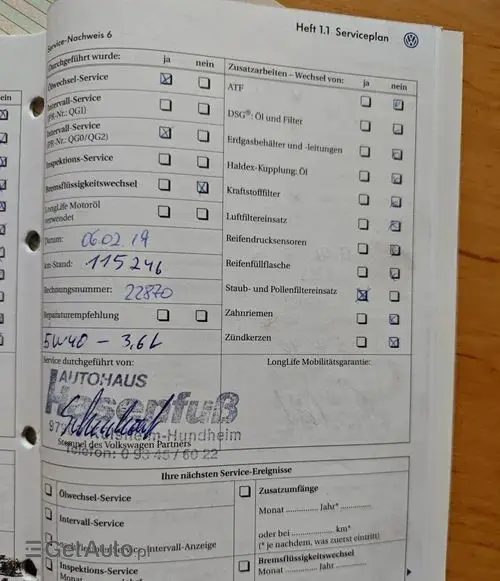 Service-Nachweis 6
Heft 1.1 Serviceplan
Durchgeführt wurde: ja nein
Ölwechsel-Service
Intervall-Service
(PR-Nr.: QG1)
Intervall-Service
(PR-Nr.: QG0/QG2)
Inspektions-Service
Bremsflüssigkeitswechsel
LongLife Motoröl
verwendet
Datum: 06.02.19
km-Stand: 115246
Rechnungsnummer: 22870
Reparaturempfehlung
5W40 - 3,6L
Service durchgeführt von:
AUTOHAUS
Hasenfuß
Hundheim
Stempel des Volkswagen Partners
Telefon: 0 93 45/60 22
Zusatzarbeiten – Wechsel von: ja nein
ATF
DSG®: Öl und Filter
Erdgasbehälter und -leitungen
Haldex-Kupplung: Öl
Kraftstofffilter
Luftfiltereinsatz
Reifendrucksensoren
Reifenfüllflasche
Staub- und Pollenfiltereinsatz
Zahnriemen
Zündkerzen
LongLife Mobilitätsgarantie:
Ihre nächsten Service-Ereignisse
Ölwechsel-Service
Intervall-Service
Intervall-Anzeige
Inspektions-Service
Monat
Zusatzumfänge
Monat .............. Jahr* ..............
oder bei .............. km*
(* je nachdem, was zuerst eintritt)
Bremsflüssigkeitswechsel
Monat .............. Jahr ..............
ein
GetAuto.pl